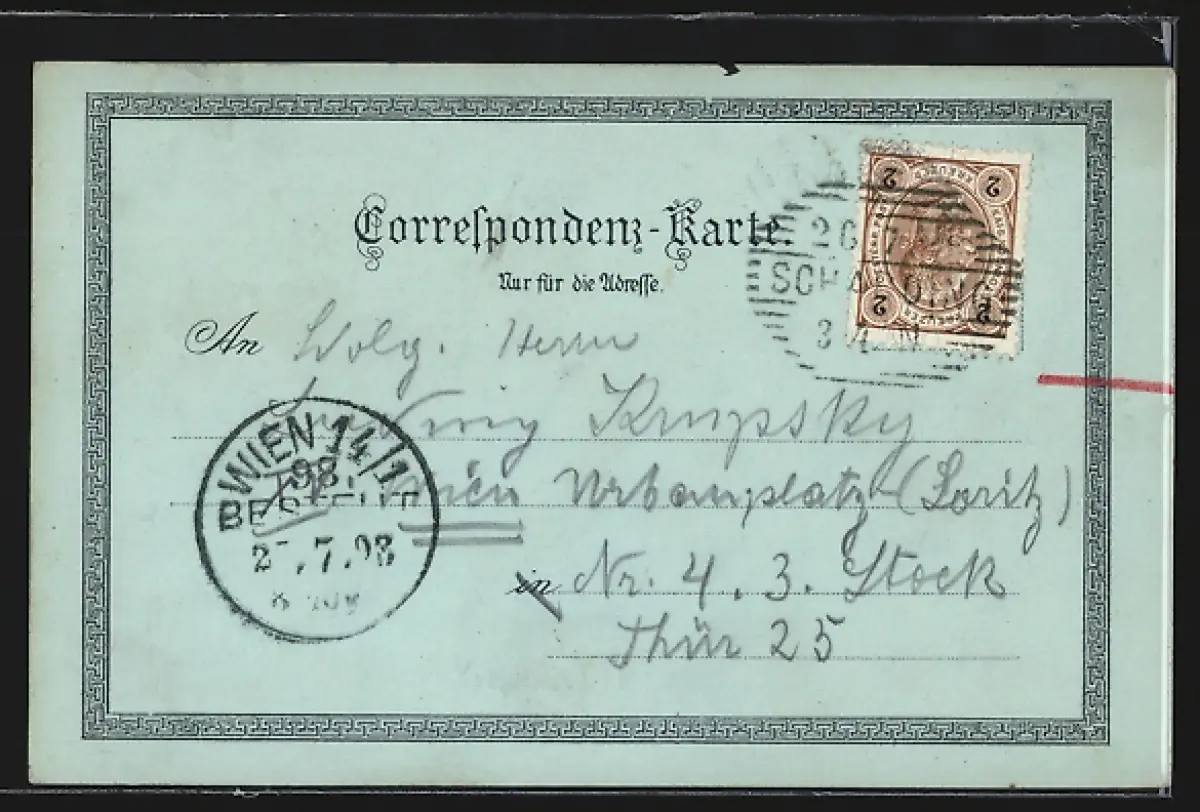 Correſpondenz-Karte.
Nur für die Adreſſe.
2 2
2 2
26 7 98
SCHLADMING
3 4 N
An Wolg. Herrn
Krupsky
Wien Urbanplatz (Loritz)
in Nr. 4. 3. Stock
Thür 25
WIEN 14/1
98
BESTELLT
7.98